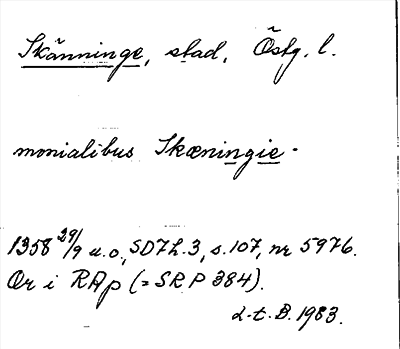 Skänninge, stad, Östg. l.
monialibus Skæningie.
1358 29/9 u.o., SD 7 h.3, s.107, nr 5976.
Or i RAp (=SRP 384).
L.t.B. 1983.